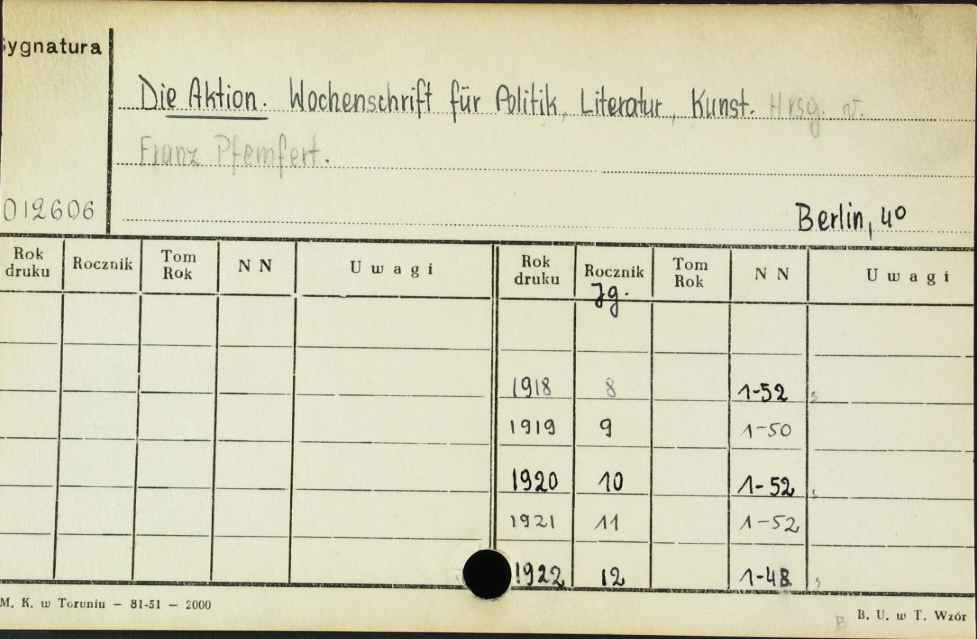 Sygnatura
Die Aktion. Wochenschrift für Politik, Literatur, Kunst. Hrsg. v.
Franz Pfemfert.
012606
Berlin, 4º
Rok druku Rocznik Tom Rok N N Uwagi Rok druku Rocznik Tom Rok N N Uwagi
Jg.
1918 8 1-52,
1919 9 1-50
1920 10 1-52,
1921 11 1-52
1922 12 1-48,
M. K. w Toruniu — 81-51 — 2000
B B. U. w T. Wzór